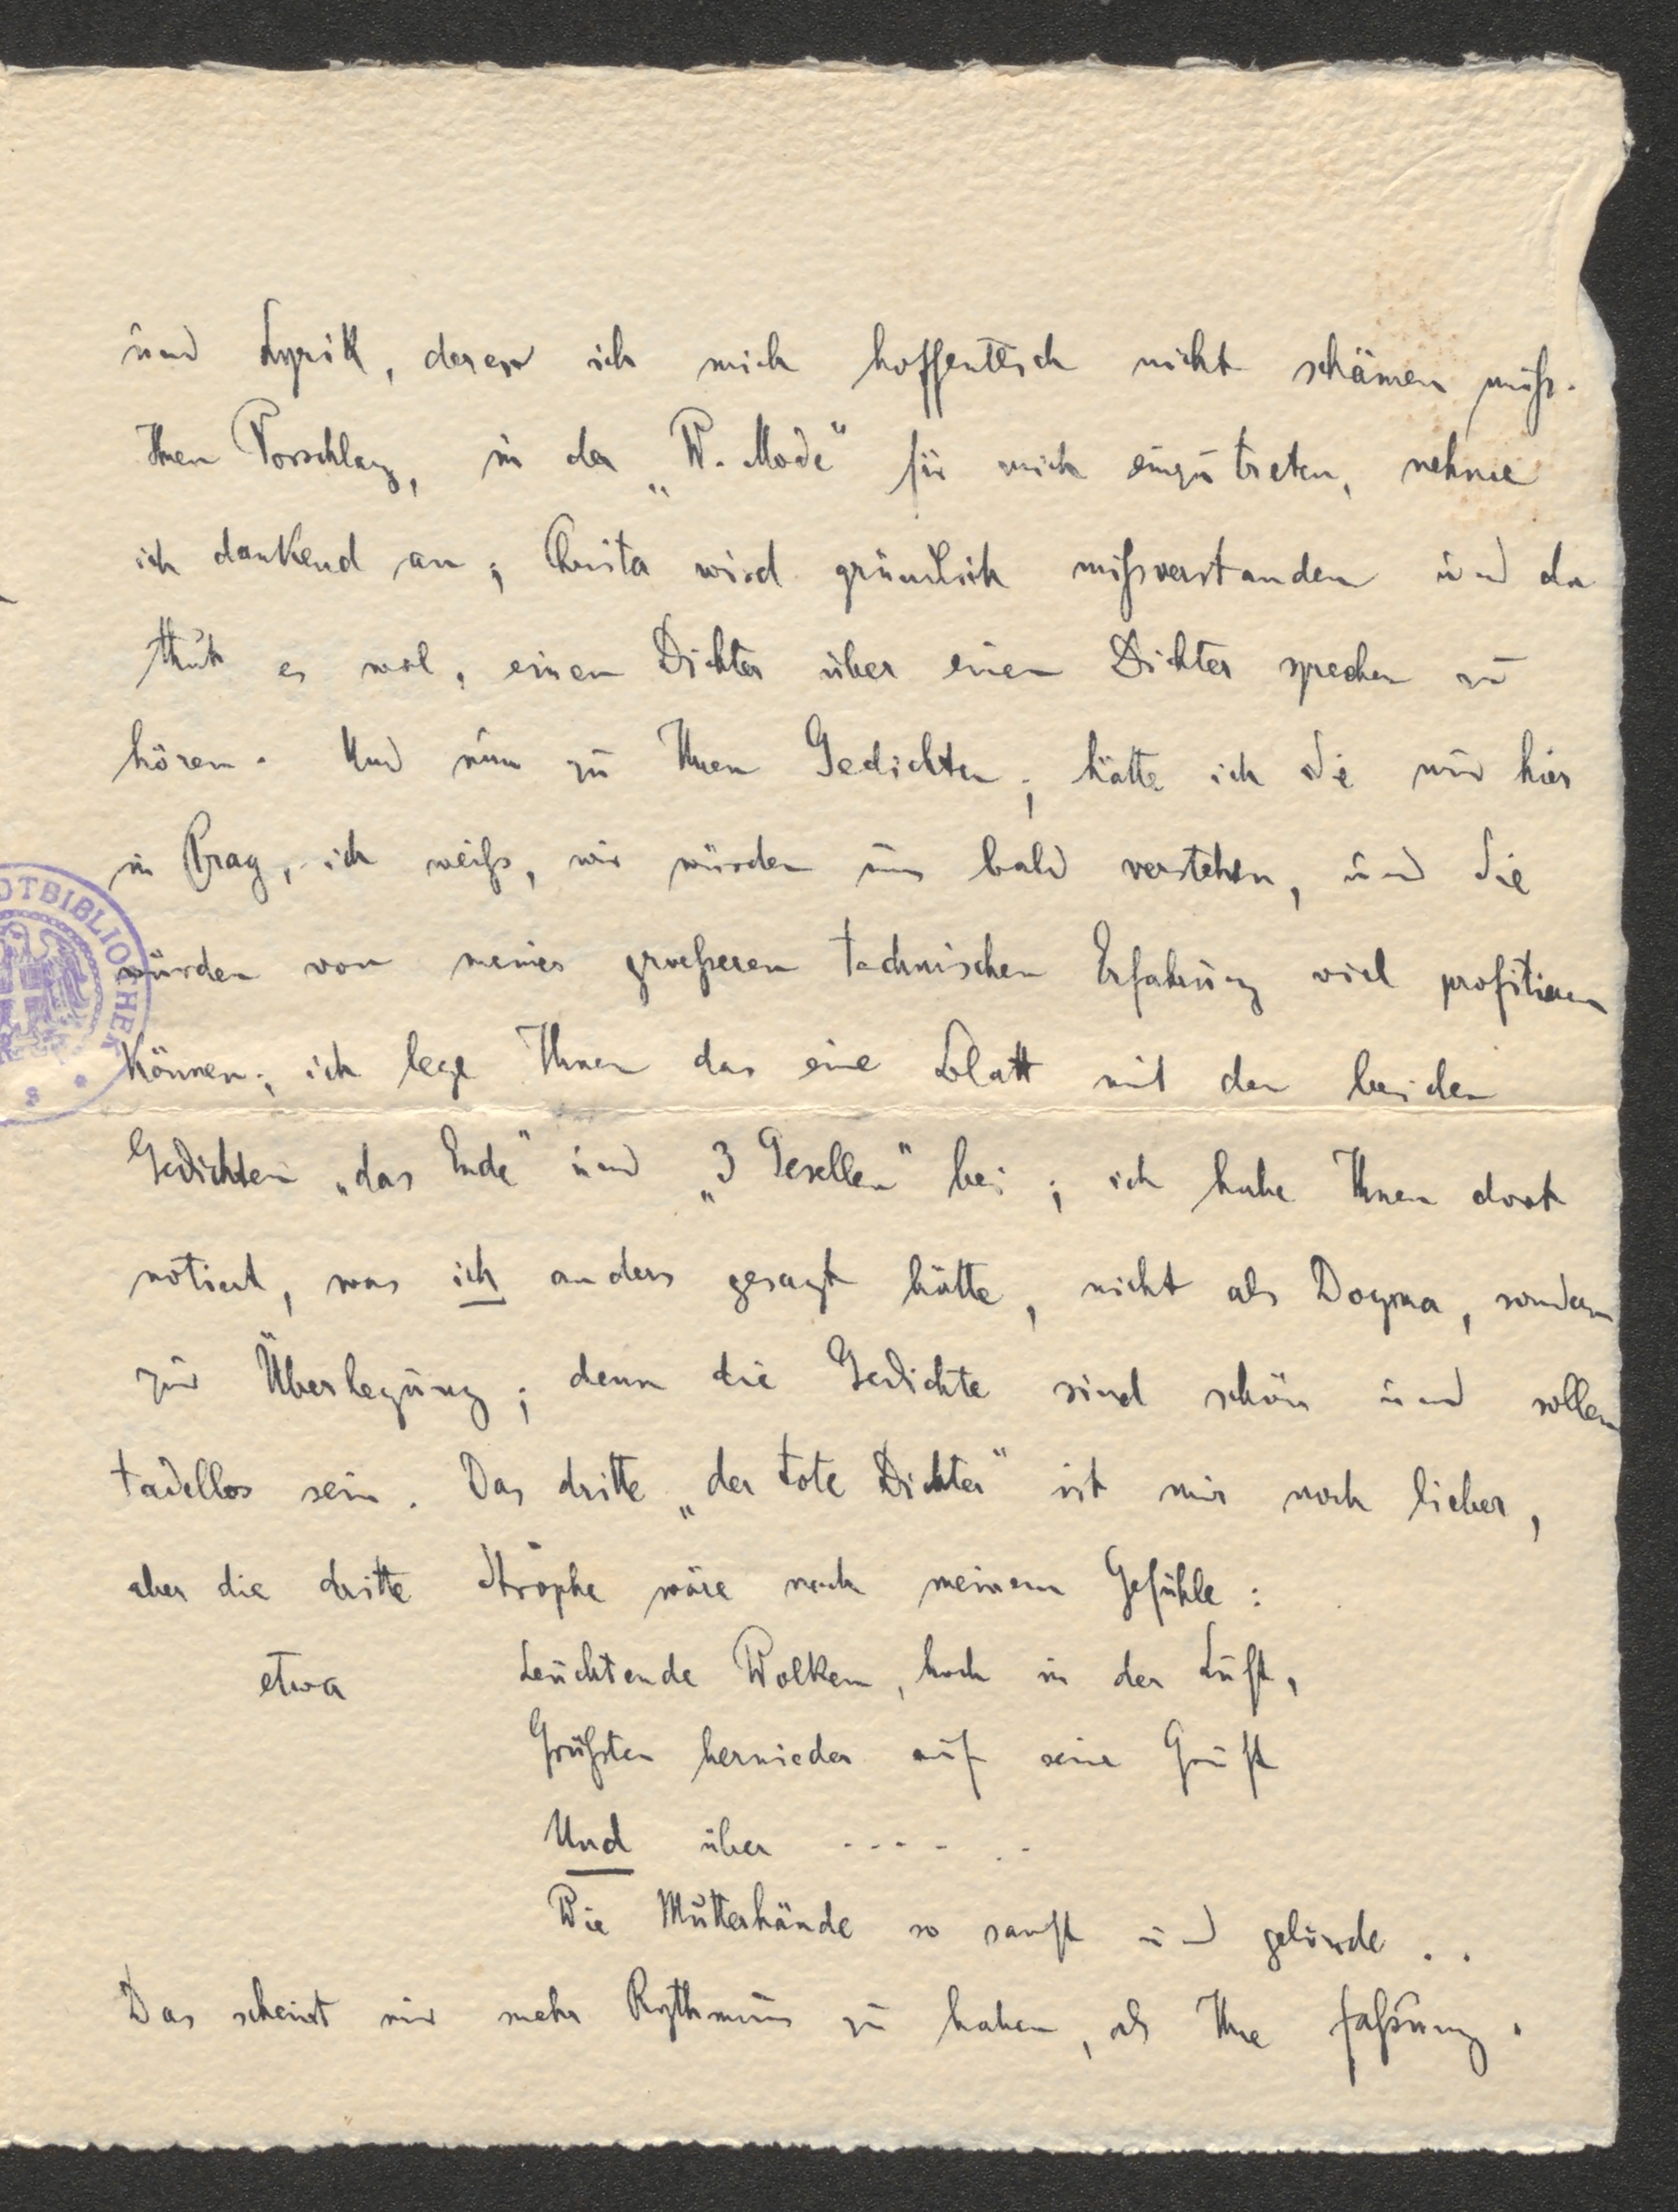 und Lyrik, deren ich mich hoffentlich nicht schämen muß.
Ihren Vorschlag, in der „W. Mode“ für mich einzutreten, nehme
ich dankend an; wird gründlich mißverstanden und da
thut es wol, einen Dichter über einen Dichter sprechen zu
hören. Und nun zu Ihren Gedichten; hätte ich Sie nur hier
in Prag, ich weiß, wir würden uns bald verstehen, und Sie
würden von meiner groeßeren technischen Erfahrung viel profitieren
können; ich lege Ihnen das eine Blatt mit den beiden
Gedichten „das Ende“ und „3 Gesellen“ bei; ich habe Ihnen dort
notiert, was ich anders gesagt hätte, nicht als Dogma, sondern
zur Überlegung; denn die Gedichte sind schön und sollen
tadellos sein. Das dritte „der tote Dichter“ ist mir noch lieber,
aber die dritte Strophe wäre nach meinem Gefühle:
etwa Leuchtende Wolken, hoch in der Luft,
Grüßten hernieder auf seine Gruft
Und über ------
Wie Mutterhände so sanft und gelinde..
Das scheint mir mehr Rythmus zu haben, als Ihre Faßung.
DTBIBLIOTHEK